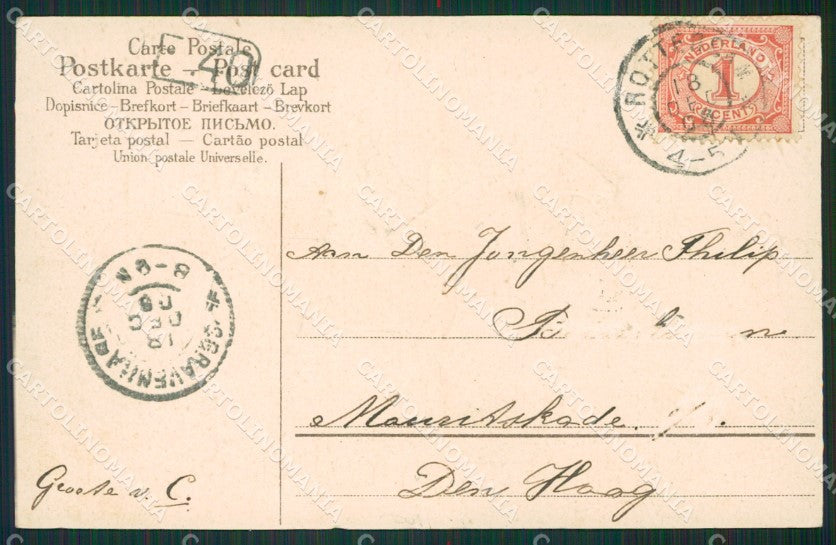 Carte Postale
Postkarte - Post card
Cartolina Postale - Levelező Lap
Dopisnice - Brefkort - Briefkaart - Brevkort
ОТКРЫТОЕ ПИСЬМО.
Tarjeta postal — Cartão postal
Union postale Universelle.
40
NEDERLAND
1
CENT
18
4-5
Aan Den Jongenheer Philip
Mauritskade
Den Haag
Groete v. C.
'SGRAVENHAGE
8-9N
18
CARTOLINOMANIA